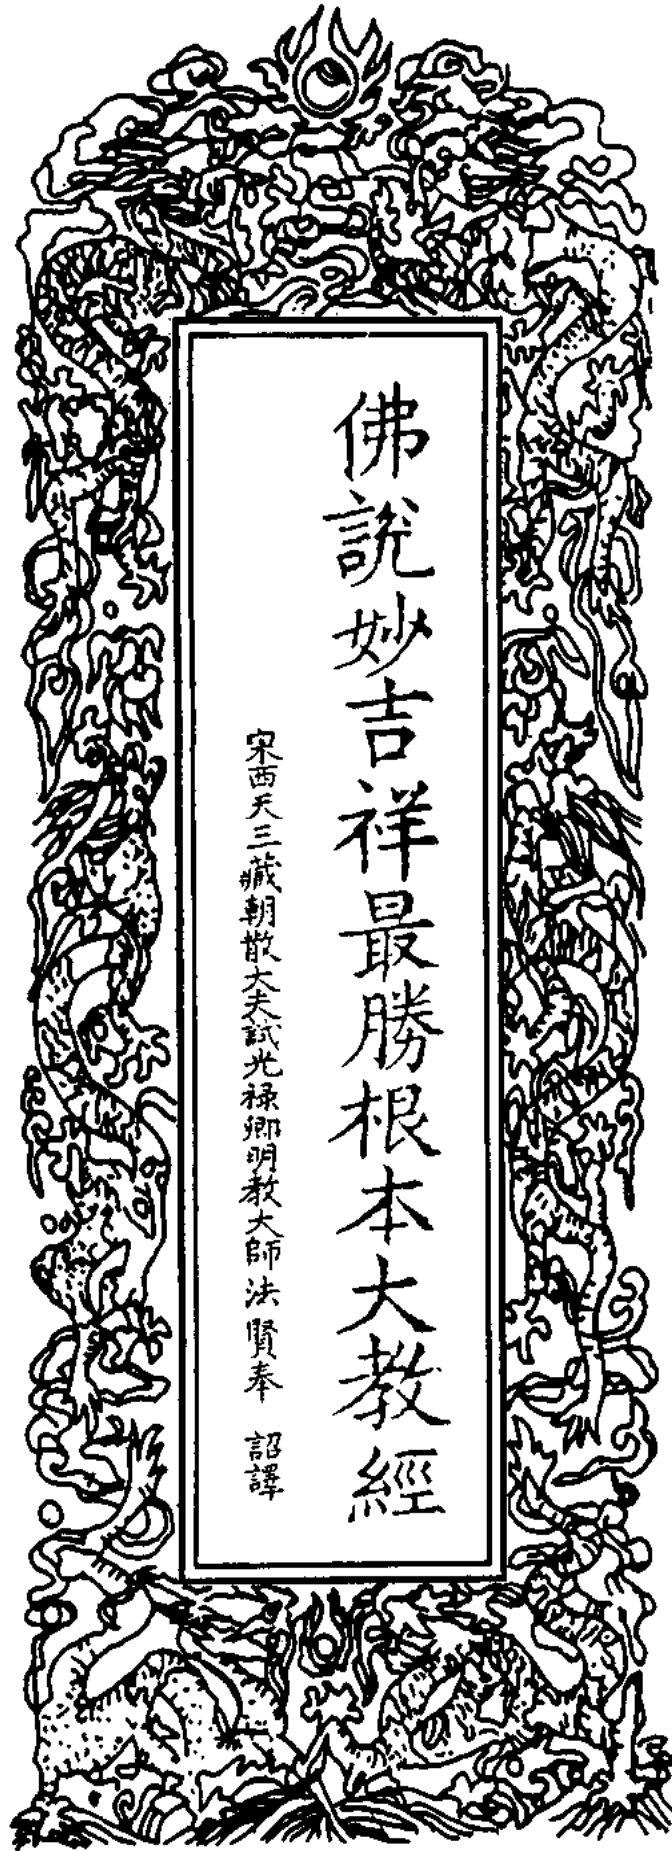 佛說妙吉祥最勝根本大教經
宋西天三藏朝散大夫試光祿卿明教大師法賢奉 詔譯